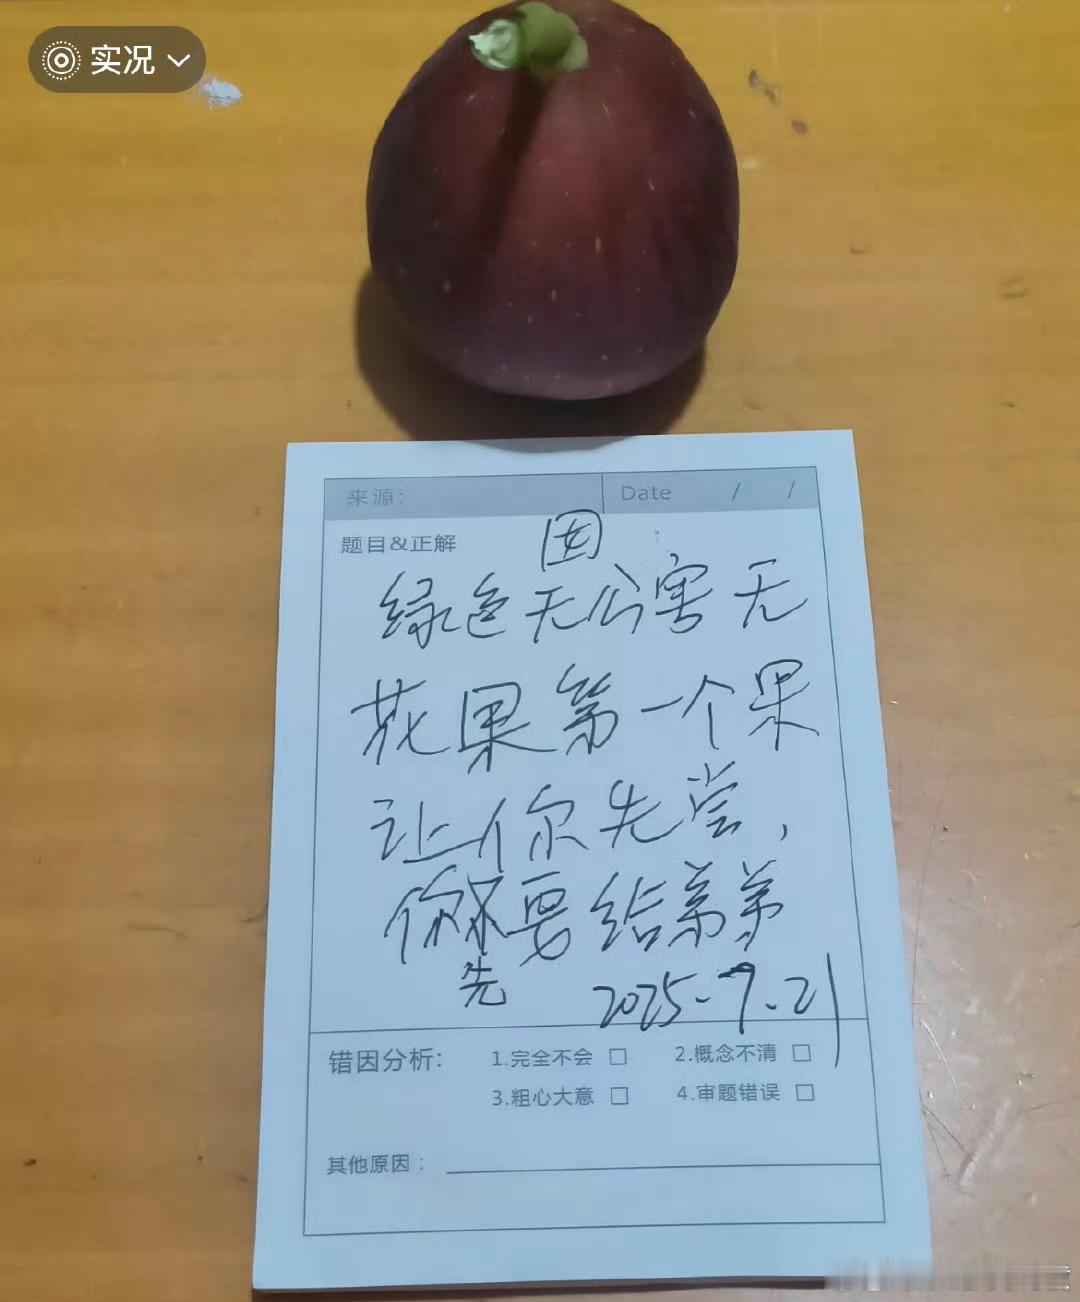 实况
来源：
Date / /
题目&正解
绿色无公害无
花果第一个果
让你先尝，
你不要给弟弟
先
2025-7-21
错因分析：
1.完全不会 □ 2.概念不清 □
3.粗心大意 □ 4.审题错误 □
其他原因：